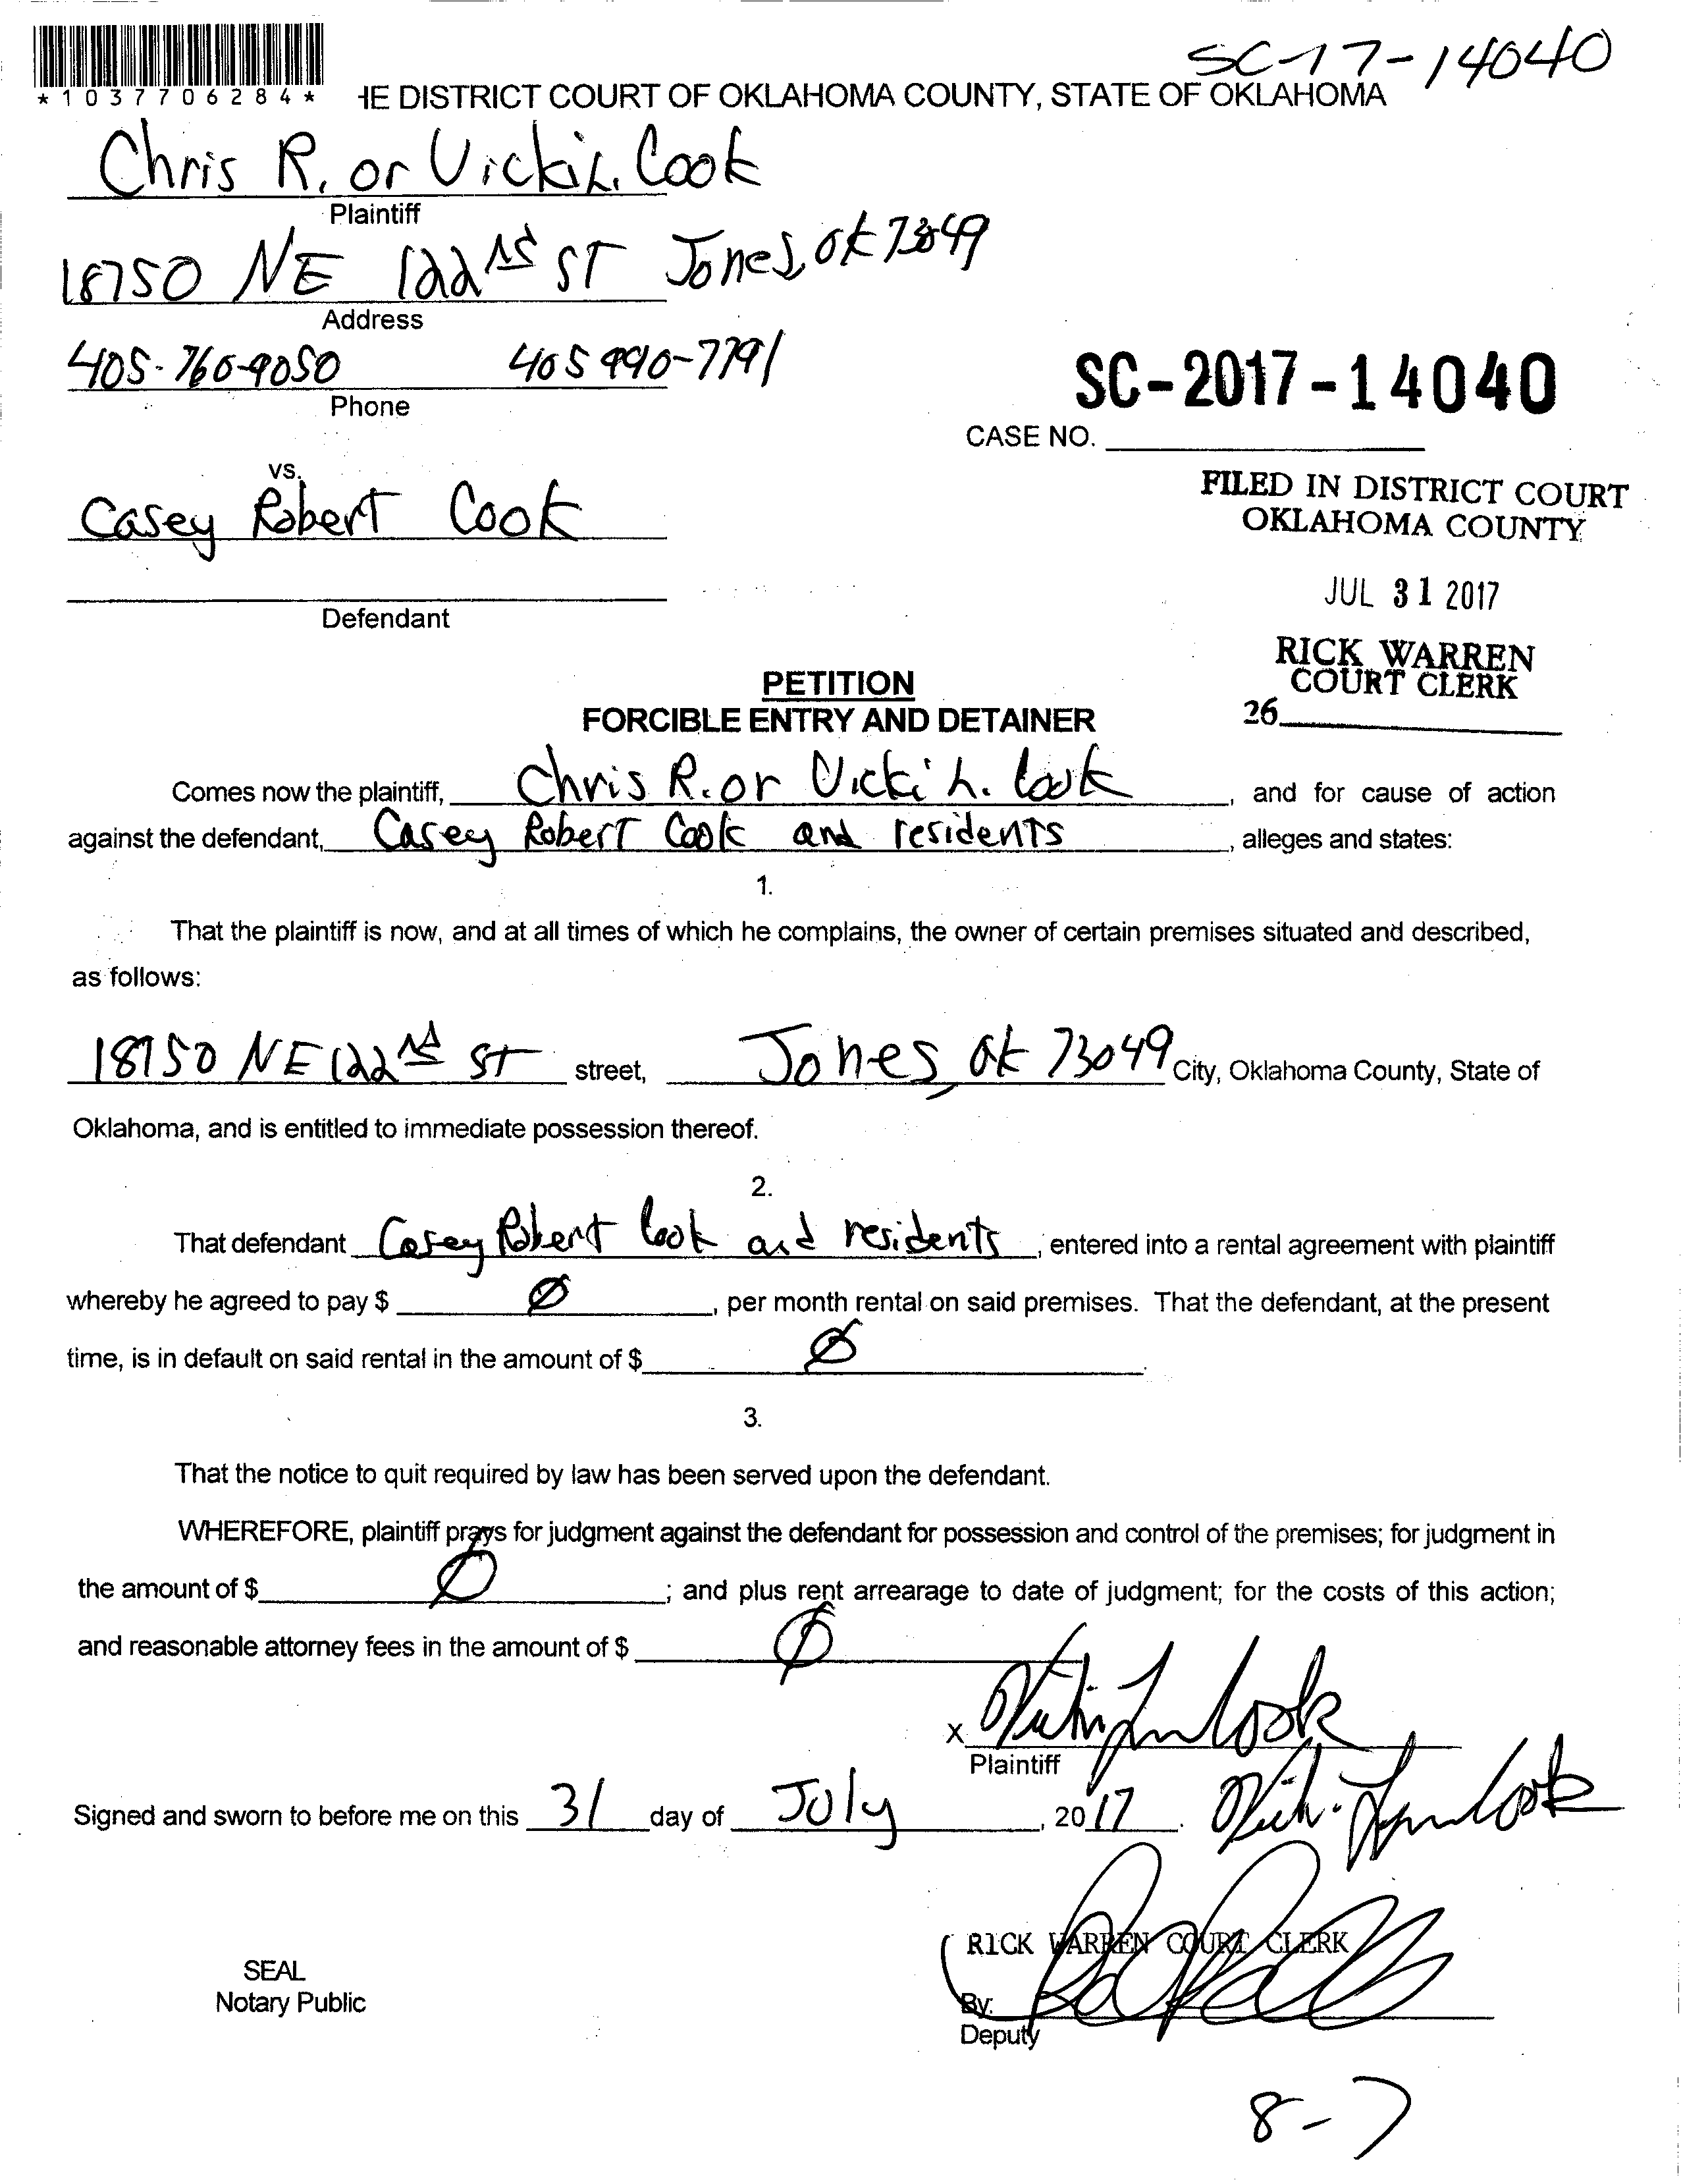 SC-17-14040
*1037706284*
HE DISTRICT COURT OF OKLAHOMA COUNTY, STATE OF OKLAHOMA
Chris R. or Vicki L. Cook
Plaintiff
18750 NE 122nd ST Jones, OK 73049
Address
405-760-9050 405 990-7791
Phone
SC-2017-14040
CASE NO.
vs.
Casey Robert Cook
Defendant
FILED IN DISTRICT COURT
OKLAHOMA COUNTY
JUL 31 2017
RICK WARREN
COURT CLERK
26
PETITION
FORCIBLE ENTRY AND DETAINER
Comes now the plaintiff, Chris R. or Vicki L. Cook, and for cause of action
against the defendant, Casey Robert Cook and residents, alleges and states:
1.
That the plaintiff is now, and at all times of which he complains, the owner of certain premises situated and described,
as follows:
18750 NE 122nd ST street, Jones, OK 73049 City, Oklahoma County, State of
Oklahoma, and is entitled to immediate possession thereof.
2.
That defendant Casey Robert Cook and residents, entered into a rental agreement with plaintiff
whereby he agreed to pay $ Ø, per month rental on said premises. That the defendant, at the present
time, is in default on said rental in the amount of $ Ø.
3.
That the notice to quit required by law has been served upon the defendant.
WHEREFORE, plaintiff prays for judgment against the defendant for possession and control of the premises; for judgment in
the amount of $ Ø; and plus rent arrearage to date of judgment; for the costs of this action;
and reasonable attorney fees in the amount of $ Ø
X Vicki Lynn Cook
Plaintiff
Signed and sworn to before me on this 31 day of July, 2017. Vicki Lynn Cook
RICK WARREN COURT CLERK
SEAL
Notary Public
By:
Deputy
8-7